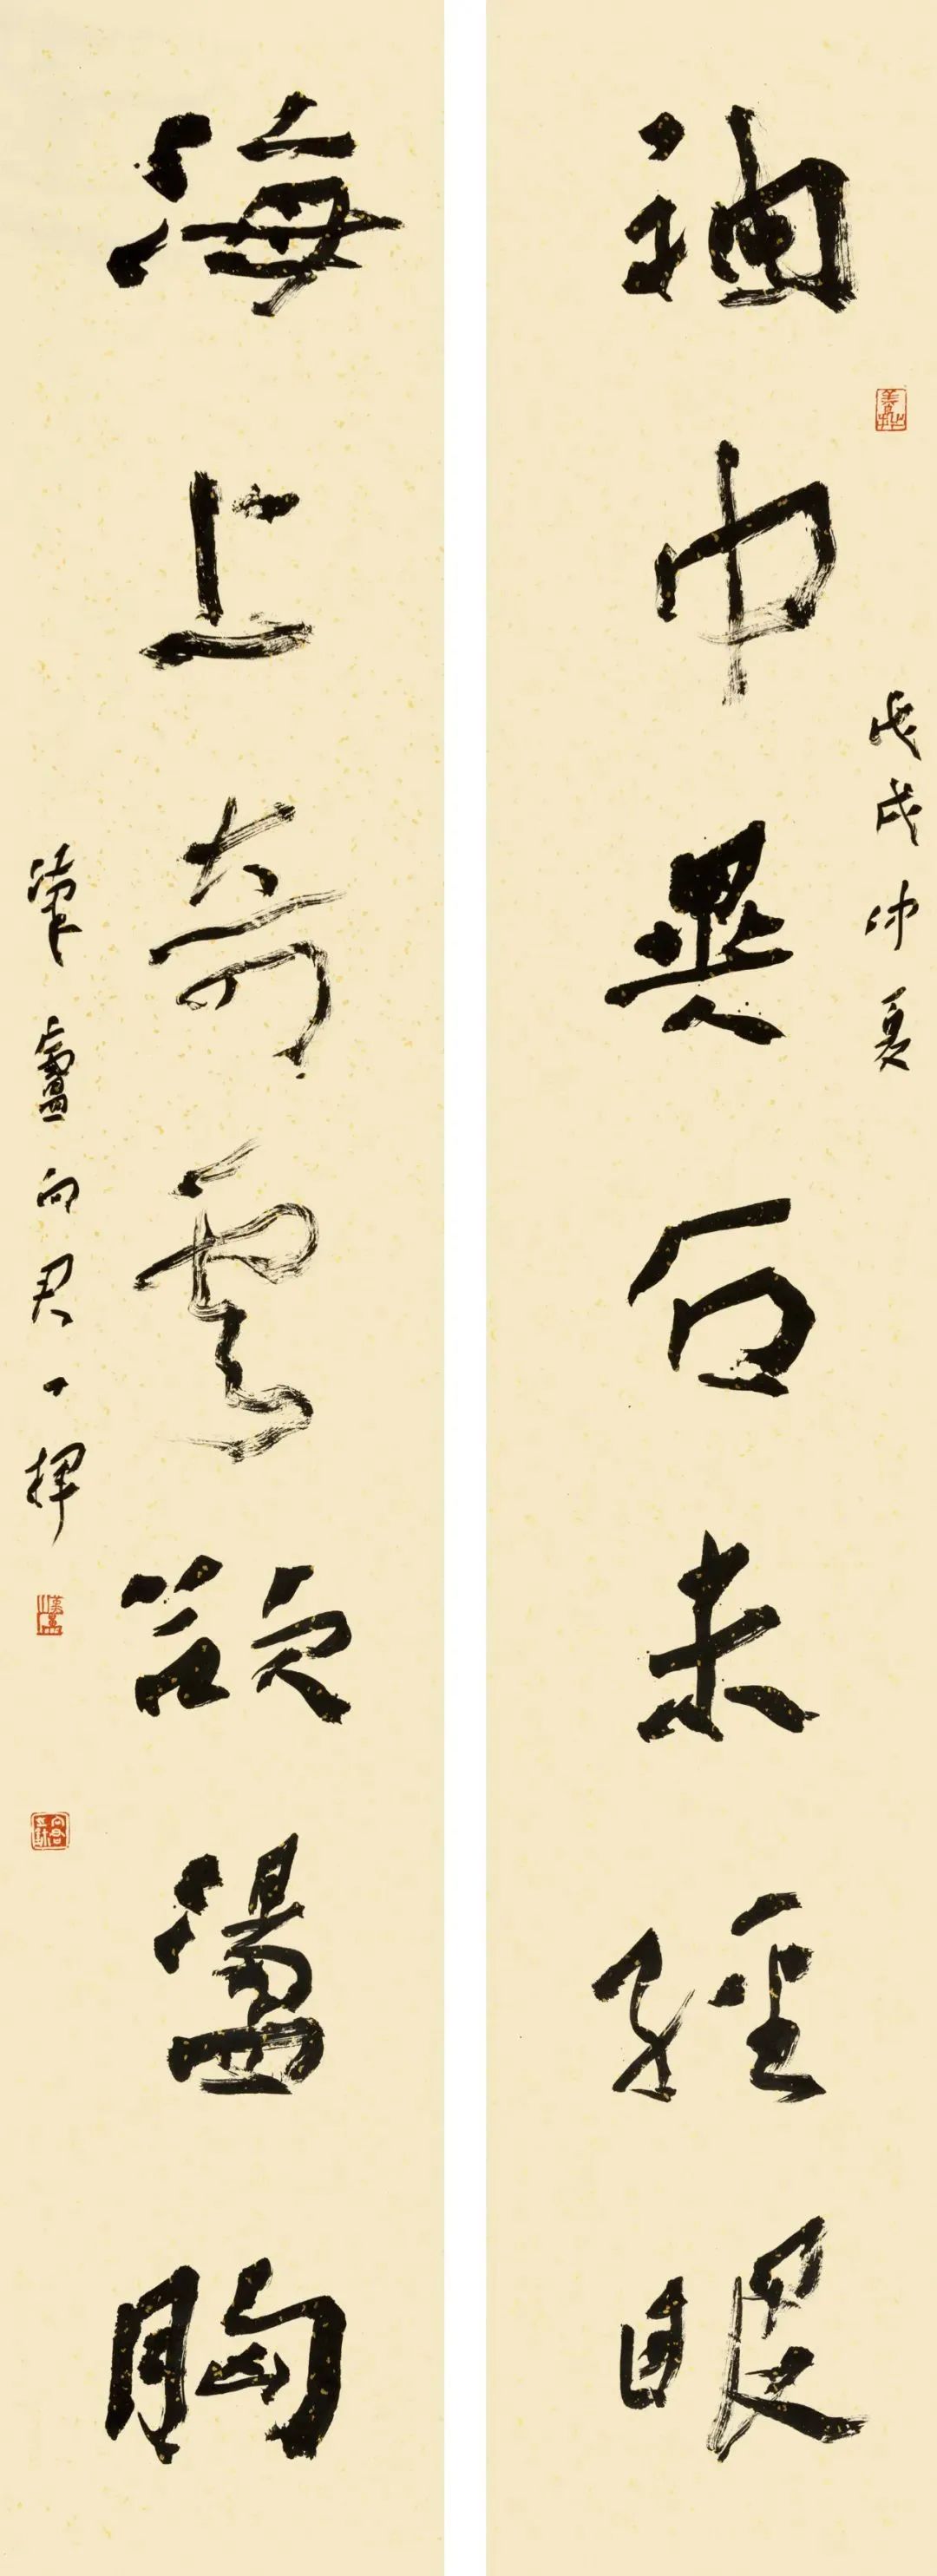 戊戌仲夏
袖中異石未經眼
海上奇雲欲盪胸
肇廬向君一揮